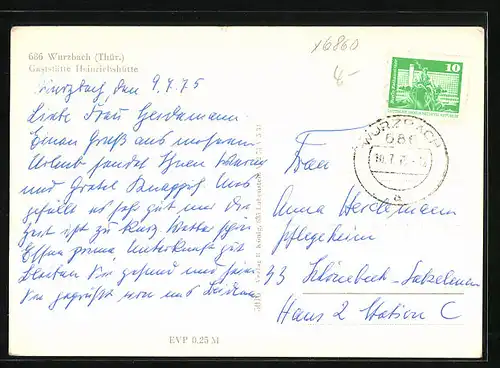 x6860
8,-
686 Wurzbach (Thür.)
Gaststätte Heinrichshütte
10
WURZBACH
686
a
Wurzbach, den 9.7.75
Liebe Frau Herdemann
Einen Gruß aus unserem
Urlaub sendet Ihnen
und Gretel Uns
gefällt es sehr gut nur die
Zeit ist zu kurz. Wetter schön
Essen prima, Unterkunft gut
Bleiben Sie gesund und seien
Sie gegrüßt von uns Beiden
Frau
Anna Herdemann
Pflegeheim
33 Schönebeck-Salzelmen
Haus 2 Station C
Verlag R. König, 685 Lobenstein
EVP 0,25 M